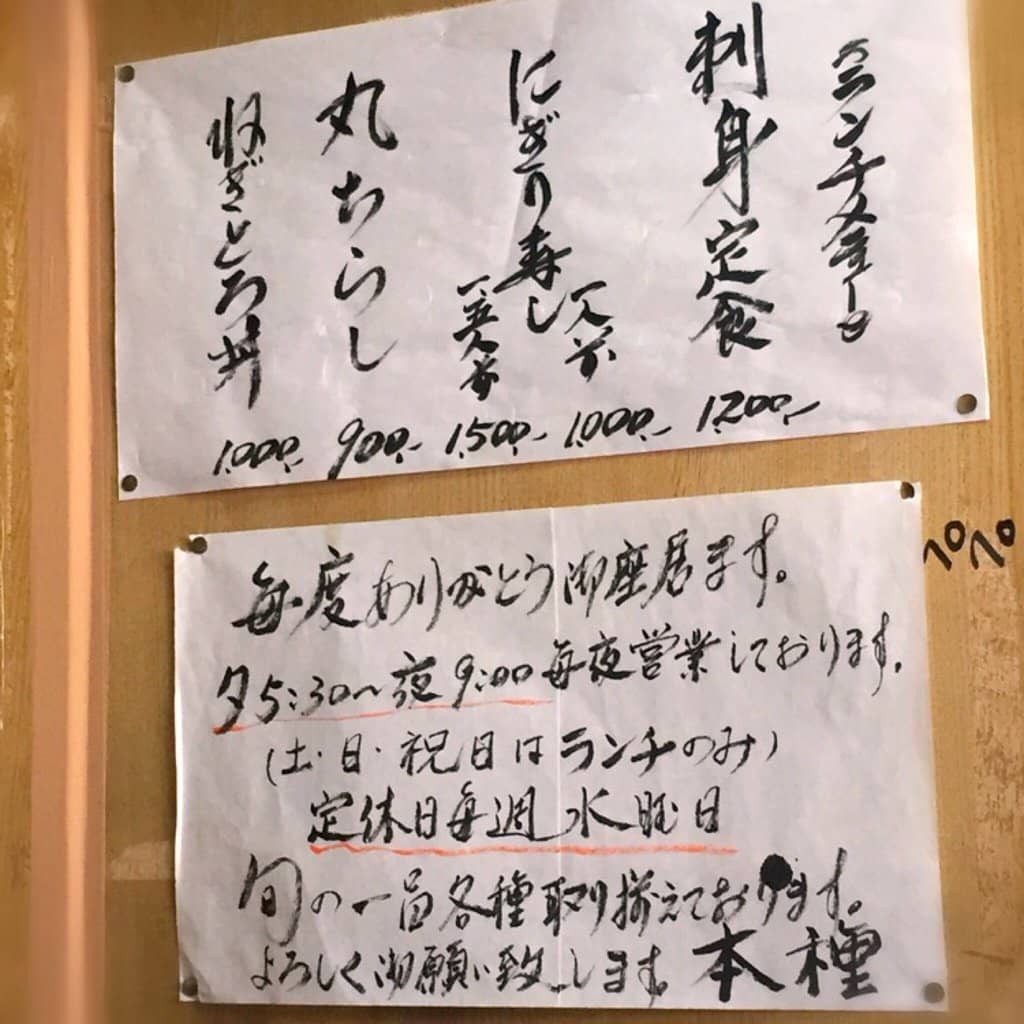 ランチメニュー
刺身定食 1,200,-
にぎり寿し 一人前 1,000,-
一.五人前 1,500,-
丸ちらし 900,-
ねぎとろ丼 1,000,-
毎度ありがとう御座居ます。
夕5:30〜夜9:00毎夜営業しております。
(土・日・祝日はランチのみ)
定休日毎週水曜日
旬の一品各種取り揃えております。
よろしく御願い致します。本種